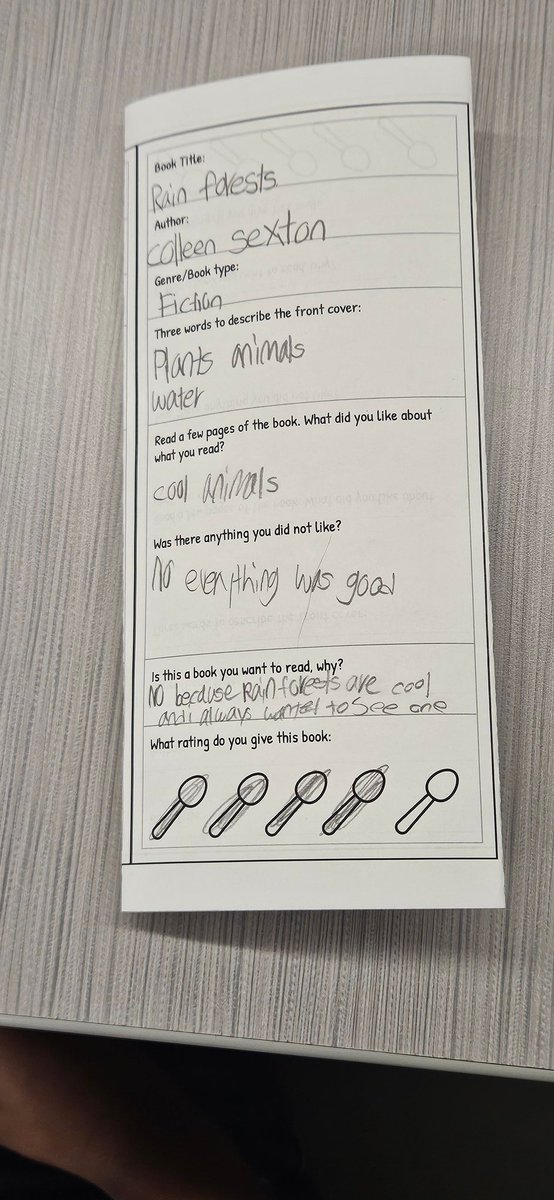 Book Title:
Rain forests
Author:
Colleen Sexton
Genre/Book type:
Fiction
Three words to describe the front cover:
Plants animals
water
Read a few pages of the book. What did you like about
what you read?
cool animals
Was there anything you did not like?
No everything was good
Is this a book you want to read, why?
No because Rainforests are cool
and i always wanted to see one
What rating do you give this book: